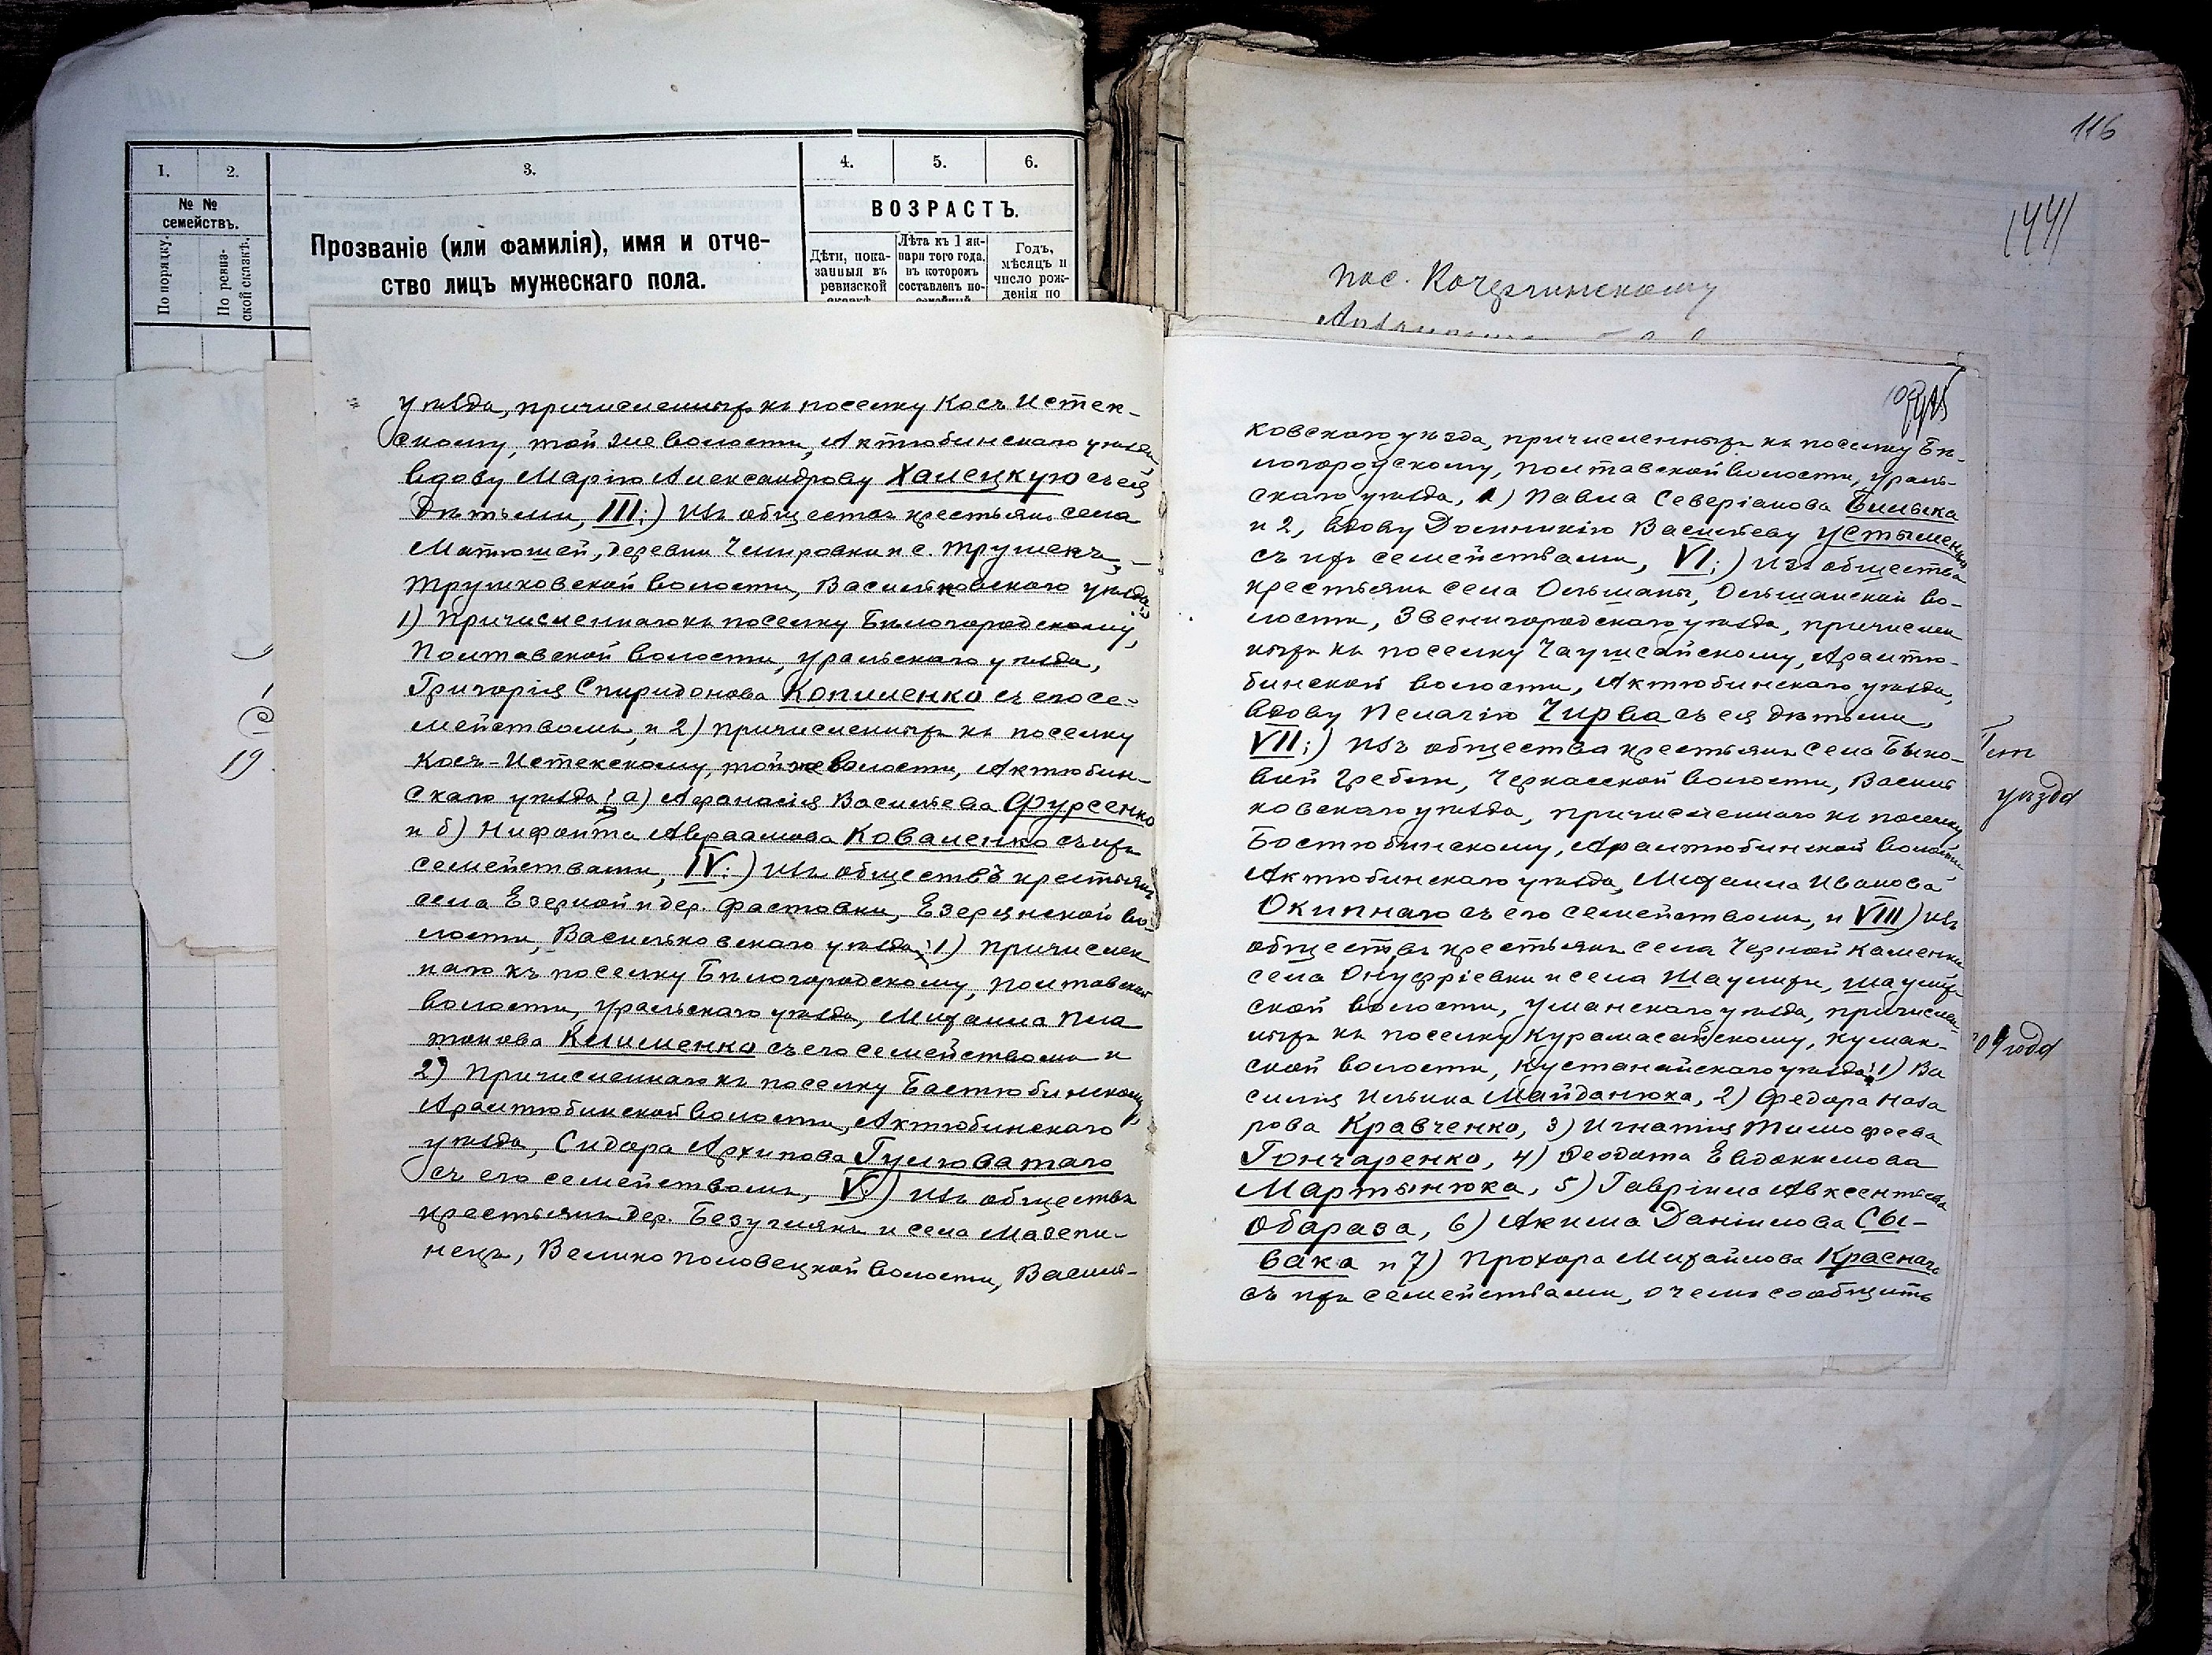 1.
2.
3.
4.
5.
6.
№ №
семействъ.
По порядку.
По ревиз-
ской сказкѣ.
Прозваніе (или фамилія), имя и отче-
ство лицъ мужескаго пола.
ВОЗРАСТЪ.
Дѣти, пока-
занныя въ
ревизской
сказкѣ
Лѣта къ 1 ян-
варя того года,
въ которомъ
составленъ по-
семейный
Годъ,
мѣсяцъ и
число рож-
денія по
19.
уѣзда, причисленныхъ къ поселку Косъ Истек-
скому, той же волости, Актюбинскаго уѣзда,
вдову Марію Александрову Халецкую съ ея
дѣтьми, III;) изъ обществъ крестьянъ села
Матюшей, деревни Чепировки и с. Трушекъ,
Трушковской волости, Васильковскаго уѣзда:
1) Причисленнаго къ поселку Бѣлогородскому,
Полтавской волости, Уральскаго уѣзда,
Григорія Спиридонова Копиленко съ его се-
мействомъ, и 2) причисленныхъ къ поселку
Косъ-Истекскому, той же волости, Актюбин-
скаго уѣзда: а) Афанасія Васильева Фурсенко
и б) Нифонта Авраамова Коваленко съ ихъ
семействами, IV:) изъ обществъ крестьянъ
села Езерной и дер. Фастовки, Езерянской во-
лости, Васильковскаго уѣзда: 1) причислен
наго къ поселку Бѣлогородскому, Полтавской
волости, Уральскаго уѣзда, Михаила Пла
тонова Клименко съ его семействомъ и
2) Причисленнаго къ поселку Бастюбинскому,
Аралтюбинской волости, Актюбинскаго
уѣзда, Сидора Архипова Гуловатаго
съ его семействомъ, V.) изъ обществъ
крестьянъ дер. Безуглякъ и села Мазепи-
нецъ, Велико Половецкой волости, Василь-
116
1441
пос.
ковскаго уѣзда, причисленныхъ къ поселку Бѣ-
логородскому, Полтавской волости, Ураль-
скаго уѣзда, 1) Павла Северіанова Билыка
и 2, вдову Домникію Васильеву Устыменко
съ ихъ семействами, VI;) изъ общества
крестьянъ села Ольшаны, Ольшанской во-
лости, Звенигородскаго уѣзда, причислен
ныхъ къ поселку Чаушсайскому, Аралтю-
бинской волости, Актюбинскаго уѣзда,
вдову Пелагію Чирва съ ея дѣтьми,
VII;) изъ общества крестьянъ села Быко-
вой Гребли, Черкасской волости, Василь
ковскаго уѣзда, причисленнаго къ поселку
Бостюбинскому, Аралтюбинской волости,
Актюбинскаго уѣзда, Михаила Иванова
Окипнаго съ его семействомъ, и VIII) изъ
обществъ крестьянъ села Черной Каменки
села Онуфріевки и села Шаулихи, Шаулих
ской волости, Уманскаго уѣзда, причислен-
ныхъ къ поселку Курамасайскому, Кумак-
ской волости, Кустанайскаго уѣзда: 1) Ва
силія Ильина Майданюка, 2) Федора Наза
рова Кравченко, 3) Игнатія Тимофеева
Гончаренко, 4) Феодота Евдокимова
Мартынюка, 5) Гавріила Авксентьева
Обараза, 6) Акима Даніилова Сы-
вака и 7) Прохора Михайлова Краснаго
съ ихъ семействами, о чемъ сообщить
уѣзда
09 года